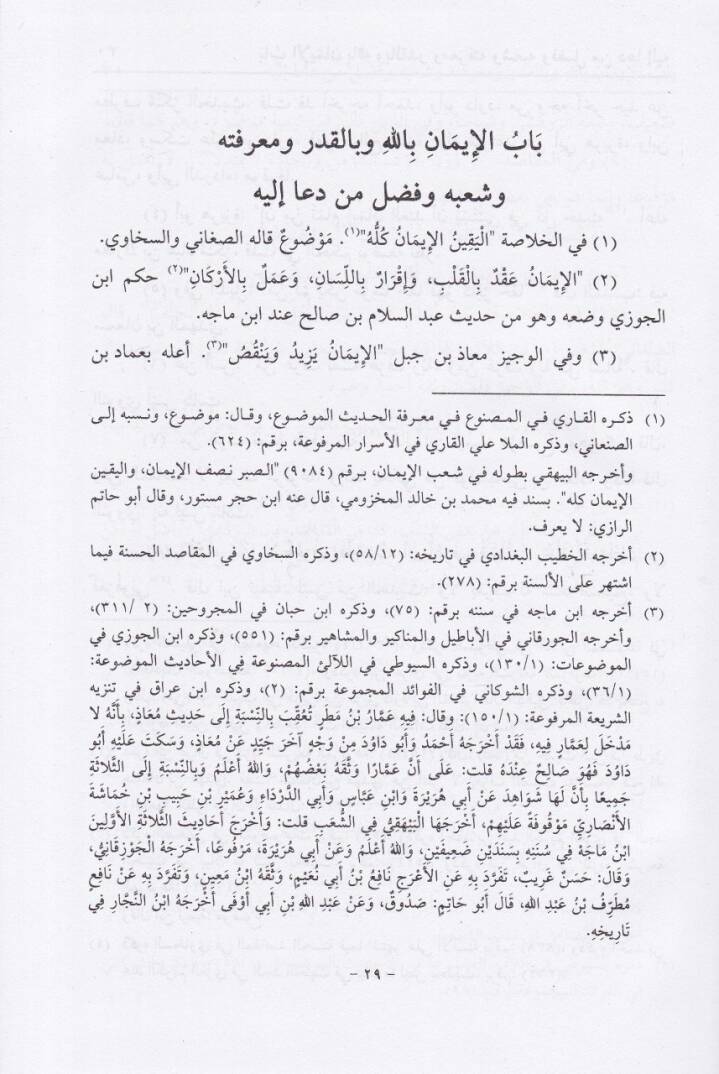 بَابُ الإِيمَانِ بِاللهِ وبالقدر ومعرفته
وشعبه وفضل من دعا إليه
(١) في الخلاصة "الْيَقِينُ الإِيمَانُ كُلُّهُ"(١). مَوْضُوعٌ قاله الصغاني والسخاوي.
(٢) "الإِيمَانُ عَقْدٌ بِالْقَلْبِ، وَإِقْرَارٌ بِاللِّسَانِ، وَعَمَلٌ بِالأَرْكَانِ"(٢) حكم ابن
الجوزي وضعه وهو من حديث عبد السلام بن صالح عند ابن ماجه.
(٣) وفي الوجيز معاذ بن جبل "الإِيمَانُ يَزِيدُ وَيَنْقُصُ"(٣). أعله بعماد بن
(١) ذكره القاري في المصنوع في معرفة الحديث الموضوع، وقال: موضوع، ونسبه إلى
الصنعاني، وذكره الملا علي القاري في الأسرار المرفوعة، برقم: (٦٢٤).
وأخرجه البيهقي بطوله في شعب الإيمان، برقم (٩٠٨٤) "الصبر نصف الإيمان، واليقين
الإيمان كله". بسند فيه محمد بن خالد المخزومي، قال عنه ابن حجر مستور، وقال أبو حاتم
الرازي: لا يعرف.
(٢) أخرجه الخطيب البغدادي في تاريخه: (٥٨/١٢)، وذكره السخاوي في المقاصد الحسنة فيما
اشتهر على الألسنة برقم: (٢٧٨).
(٣) أخرجه ابن ماجه في سننه برقم: (٧٥)، وذكره ابن حبان في المجروحين: (٢ /٣١١)،
وأخرجه الجورقاني في الأباطيل والمناكير والمشاهير برقم: (٥٥١)، وذكره ابن الجوزي في
الموضوعات: (١٣٠/١)، وذكره السيوطي في اللآلئ المصنوعة فِي الأحاديث الموضوعة:
(٣٦/١)، وذكره الشوكاني في الفوائد المجموعة برقم: (٢)، وذكره ابن عراق في تنزيه
الشريعة المرفوعة: (١٥٠/١): وقال: فِيهِ عَمَّارُ بْنُ مَطَرٍ تُعُقِّبَ بِالنِّسْبَةِ إِلَى حَدِيثِ مُعَاذٍ، بِأَنَّهُ لا
مَدْخَلَ لِعَمَّارٍ فِيهِ، فَقَدْ أَخْرَجَهُ أَحْمَدُ وَأَبُو دَاوُدَ مِنْ وَجْهٍ آخَرَ جَيِّدٍ عَنْ مُعَاذٍ، وَسَكَتَ عَلَيْهِ أَبُو
دَاوُدَ فَهُوَ صَالِحٌ عِنْدَهُ قلت: عَلَى أَنَّ عَمَّارًا وَثَّقَهُ بَعْضُهُمْ، وَاللهُ أَعْلَمُ وَبِالنِّسْبَةِ إِلَى الثَّلاثَةِ
جَمِيعًا بِأَنَّ لَهَا شَوَاهِدَ عَنْ أَبِي هُرَيْرَةَ وَابْنِ عَبَّاسٍ وَأَبِي الدَّرْدَاءِ وَعُمَيْرِ بْنِ حَبِيبِ بْنِ خُمَاشَةَ
الأَنْصَارِيِّ مَوْقُوفَةً عَلَيْهِمْ، أَخْرَجَهَا الْبَيْهَقِيُّ فِي الشُّعَبِ قلت: وَأَخْرَجَ أَحَادِيثَ الثَّلاثَةِ الأَوَّلِينَ
ابْنُ مَاجَهْ فِي سُنَنِهِ بِسَنَدَيْنِ ضَعِيفَيْنِ، وَاللهُ أَعْلَمُ وَعَنْ أَبِي هُرَيْرَةَ، مَرْفُوعًا، أَخْرَجَهُ الْجَوْزَقَانِيُّ،
وَقَالَ: حَسَنٌ غَرِيبٌ، تَفَرَّدَ بِهِ عَنِ الأَعْرَجِ نَافِعُ بْنُ أَبِي نُعَيْمٍ، وَثَّقَهُ ابْنُ مَعِينٍ، وَتَفَرَّدَ بِهِ عَنْ نَافِعٍ
مُطَرِّفُ بْنُ عَبْدِ اللهِ، قَالَ أَبُو حَاتِمٍ: صَدُوقٌ، وَعَنْ عَبْدِ اللهِ بْنِ أَبِي أَوْفَى أَخْرَجَهُ ابْنُ النَّجَّارِ فِي
تَارِيخِهِ.
- ٢٩ -